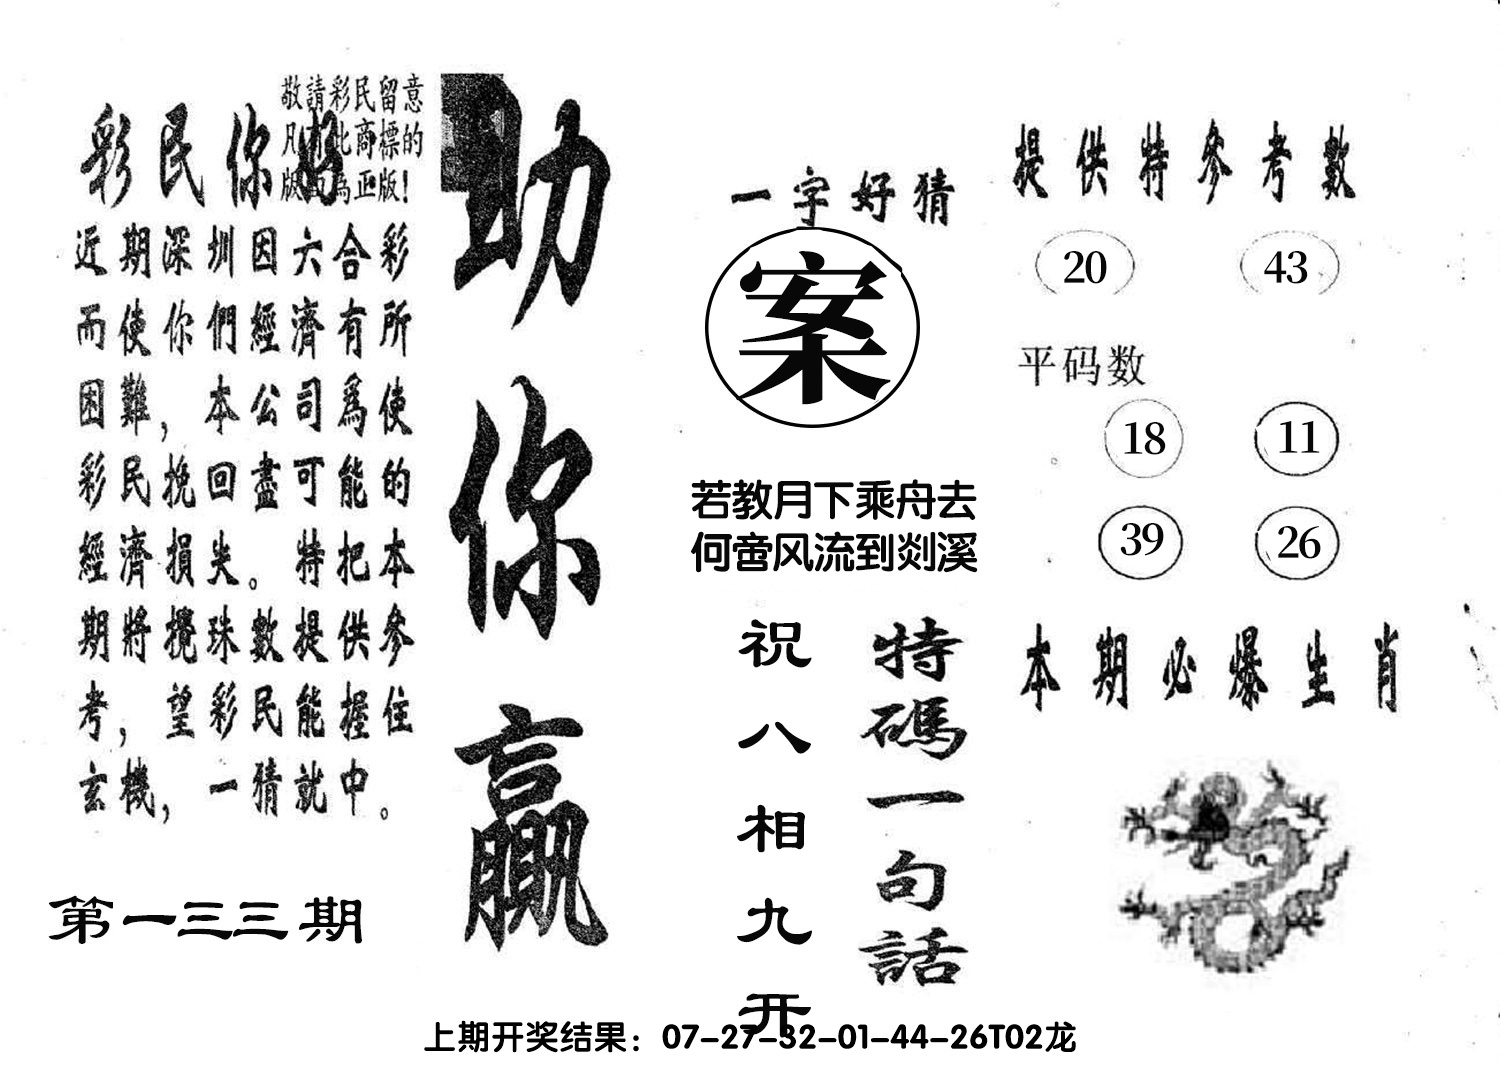 敬請彩民留意
凡有此商標的
版面為正版！
彩民你好
近期深圳因六合彩
而使你們經濟有所
困難，本公司爲使
彩民挽回盡可能的
經濟損失。特把本
期將攪珠數提供參
考，望彩民能握住
玄機，一猜就中。
第一三三期
助你贏
一字好猜
案
若教月下乘舟去
何啻风流到剡溪
特碼一句話
祝八相九开
提供特參考數
20 43
平码数
18 11
39 26
本期必爆生肖
上期开奖结果：07-27-32-01-44-26T02龙